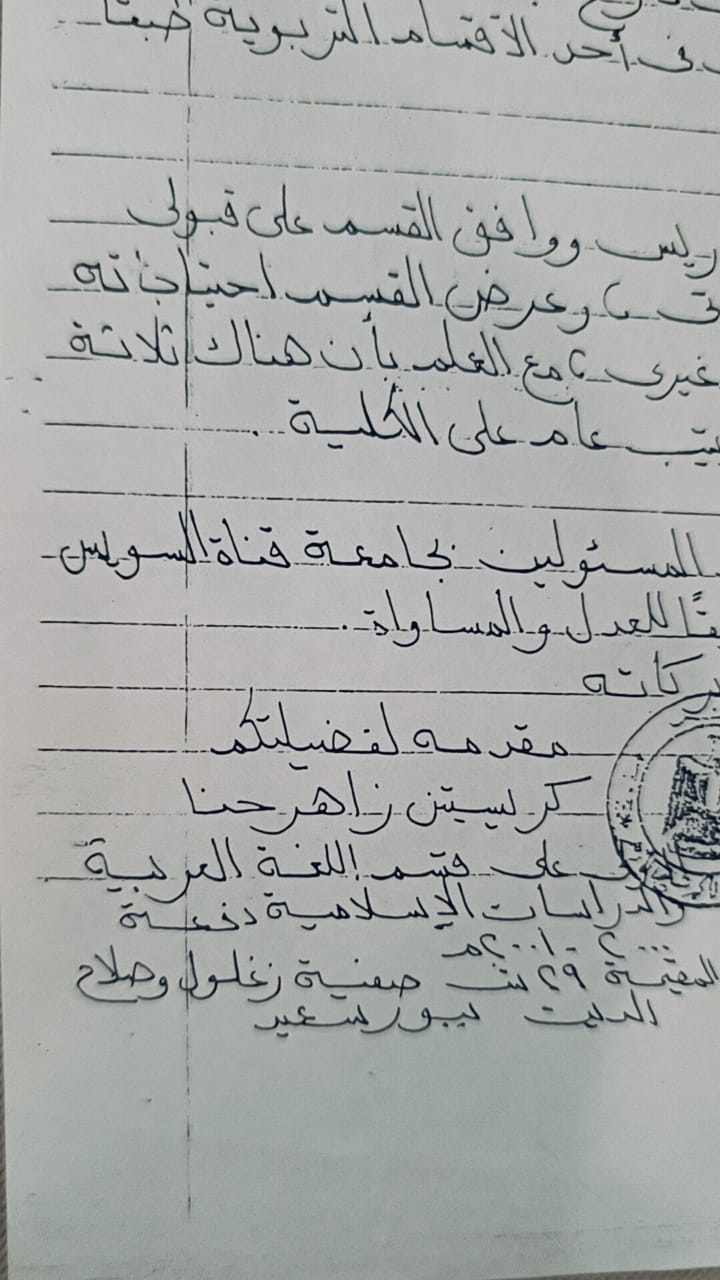 فى أحد الأقسام التربوية طبقا
ريس ووافق القسم على قبولى
تى ، وعرض القسم احتياجاته
غيرى ، مع العلم بأن هناك ثلاثة
عام على الكلية .
المسئولين بجامعة قناة السويس
قًا للعدل والمساواة .
بركاته
مقدمه لفضيلتكم
كريستين زاهر حنا
على قسم اللغة العربية
والدراسات الإسلامية دفعة
٢٠٠٠ - ٢٠٠١م
المقيمة ٢٩ ش صفية زغلول وصلاح
الدين ببورسعيد